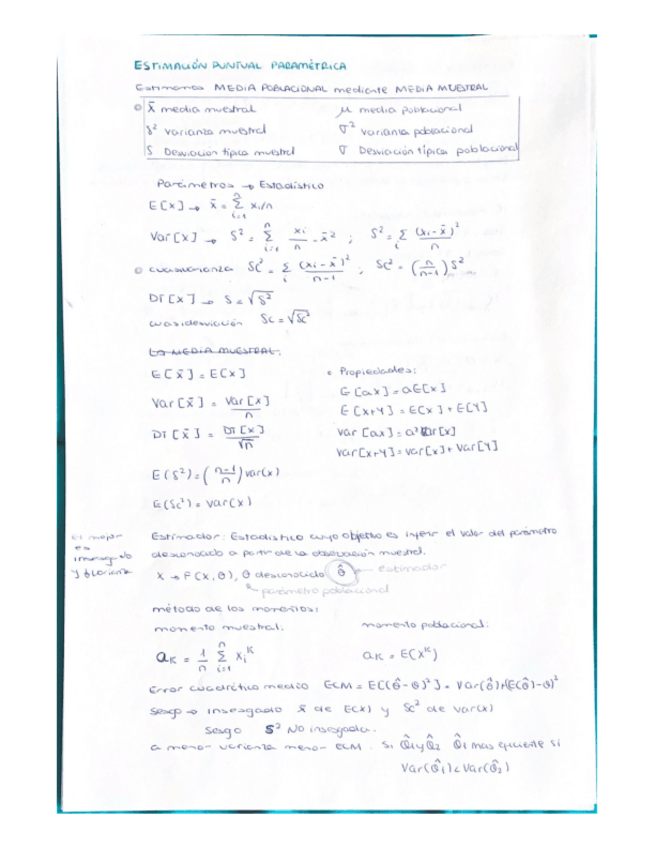 ESTIMACIÓN PUNTUAL PARAMÉTRICA
Estimamos MEDIA POBLACIONAL mediante MEDIA MUESTRAL
x̄ media muestral μ media poblacional
s² varianza muestral σ² varianza poblacional
S Desviación típica muestral σ Desviación típica poblacional
Parámetros → Estadístico
E[X] → x̄ = Σ(i=1, n) xi/n
Var[X] → S² = Σ(i=1, n) xi/n - x̄² ; S² = Σi (xi - x̄)²/n
cuasivarianza Sc² = Σi (xi - x̄)²/(n-1) ; Sc² = (n/(n-1)) S²
DT[X] → S = √S²
cuasidesviación Sc = √Sc²
LA MEDIA MUESTRAL:
E[x̄] = E[X]
Var[x̄] = Var[X]/n
DT[x̄] = DT[X]/√n
E(S²) = ((n-1)/n) Var(X)
E(Sc²) = Var(X)
Propiedades:
E[aX] = aE[X]
E[X+Y] = E[X] + E[Y]
Var[aX] = a² Var[X]
Var[X+Y] = Var[X] + Var[Y]
El mejor
es
insesgado
y
Estimador: Estadístico cuyo objetivo es inferir el valor del parámetro
desconocido a partir de la observación muestral.
X → F(X, θ), θ desconocido θ̂ ← estimador
parámetro poblacional
método de los momentos:
momento muestral: momento poblacional:
aK = 1/n Σ(i=1, n) xi^K aK = E(X^K)
Error cuadrático medio ECM = E[(θ̂ - θ)²] = Var(θ̂) + (E(θ̂) - θ)²
Sesgo → insesgado x̄ de E(X) y Sc² de Var(X)
Sesgo S² NO insesgada.
a menor varianza menor ECM. Si θ̂1 y θ̂2 θ̂1 mas eficiente si
Var(θ̂1) < Var(θ̂2)